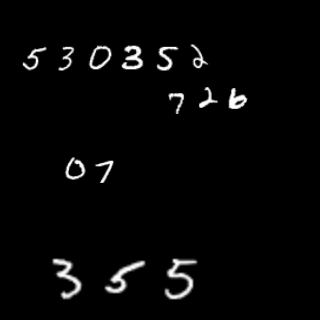 530352
726
07
355